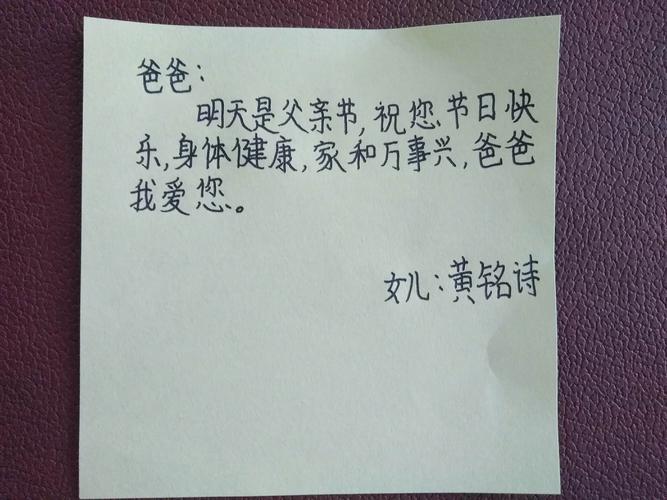 爸爸：
明天是父亲节,祝您节日快
乐,身体健康,家和万事兴,爸爸
我爱您。
女儿：黄铭诗